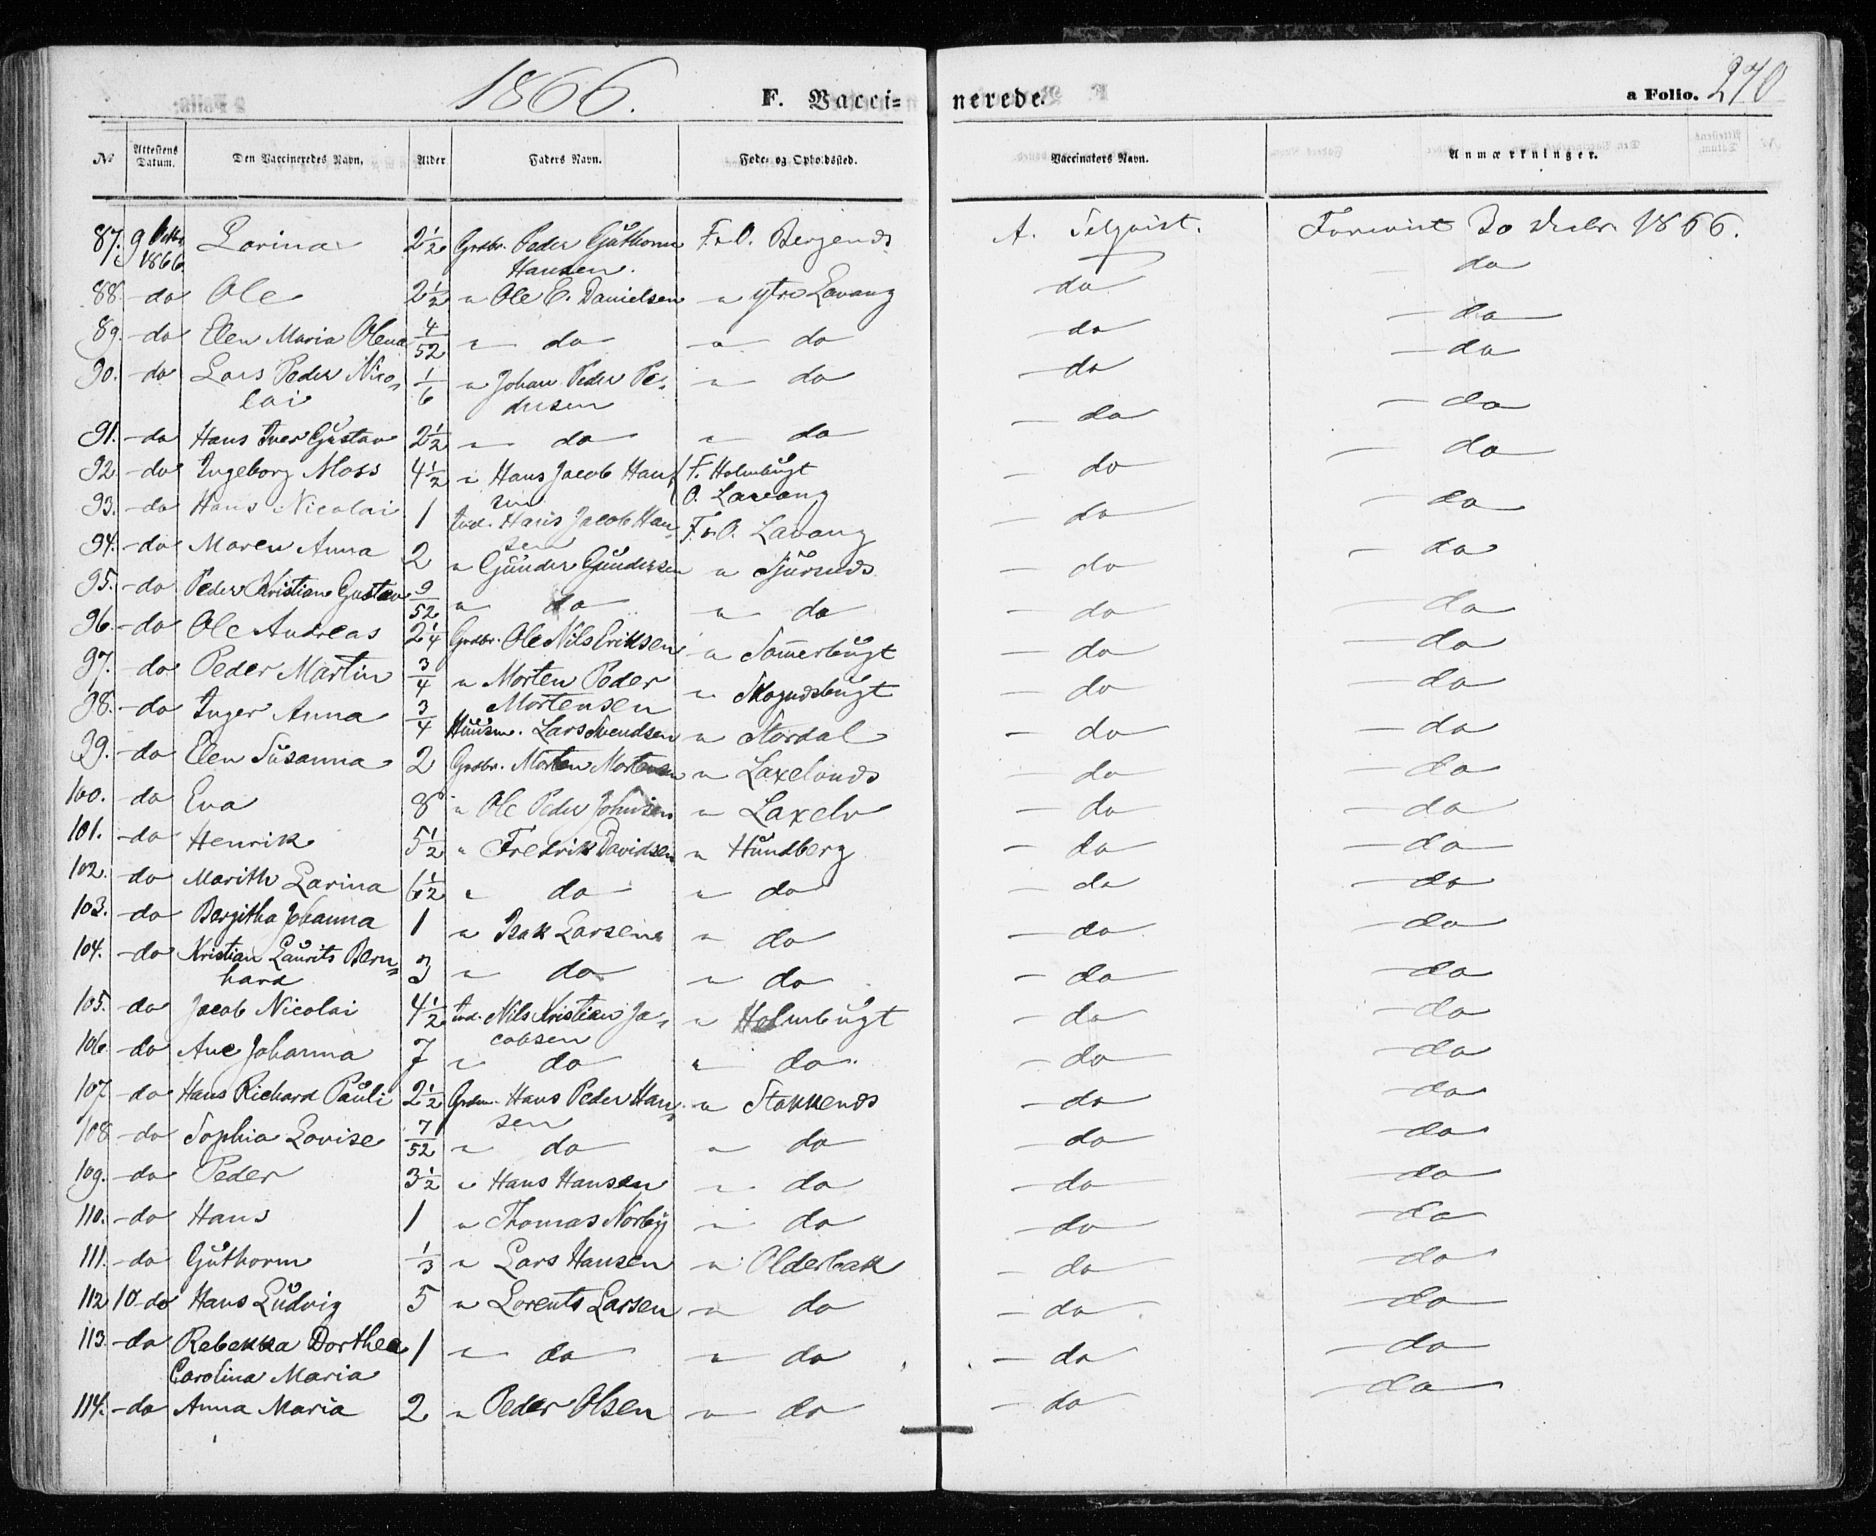 1866. F. Vacci= nerede. a Folio. 270
No Attestens Datum. Den Vaccineredes Navn. Alder Faders Navn. Føde- og Opholdssted. Vaccinators Navn. Anmærkninger.
87. 9 Octbr 1866 Larina 2 1/2 Grdbr. Peder Guthorm Hansen. F. & O. Bergends A. 1866.
88. do Ole 2 1/2 " Ole E. Danielsen " ytre Lavang do do
89. do Elen Maria Olena 4/52 " do " do do do
90. do Lars Peder Nico= lai 1/6 " Johan Peder Pe= dersen " do do do
91. do Hans Iver Gustav 2 1/2 " do " do do do
92. do Ingeborg Moss 4 1/2 " Hans Jacob Han= sen F. Holmbugt O. Lavang do do
93. do Hans Nicolai 1 Ind. Hans Jacob Han= sen F. & O. Lavang do do
94. do Maren Anna 2 " Gunder Gundersen " do do
95. do Peder Kristian Gustav 9/52 " do " do do do
96. do Ole Andreas 2 1/4 Grdbr. Ole Nils Eriksen " Sommerbugt do do
97. do Peder Martin 3/4 " Morten Peder Mortensen " do do
98. do Inger Anna 3/4 Huusm. Lars Svendsen " Stordal do do
99. do Elen Susanna 2 Grdbr. Morten Mortensen " do do
100. do Eva 8 " Ole Peder Johnsen " Laxelv do do
101. do Henrik 5 1/2 " Fredrik Davidsen " Hundberg do do
102. do Marith Larina 6 1/2 " do " do do do
103. do Bergitha Johanna 1 " Isak Larsen " do do do
104. do Kristian Laurits Bern= hard 3 " do " do do do
105. do Jacob Nicolai 4 1/2 Ind. Nils Kristian Ja= cobsen " Holmbugt do do
106. do Ane Johanna 7 " do " do do do
107. do Hans Richard Pauli 2 1/2 Hans Peder Han= sen " Stokkends do do
108. do Sophia Lovise 7/52 " do " do do do
109. do Peder 3 1/2 " Hans Hansen " do do do
110. do Hans 1 " Thomas Norby " do do do
111. do Guthorm 1/3 " Lars Hansen " Olderbak do do
112. 10 do Hans Ludvig 5 " Lorents Larsen " do do do
113. do Rebekka Dorthea Carolina Maria 1 " do " do do do
114. do Anna Maria 2 " Peder Olsen " do do do